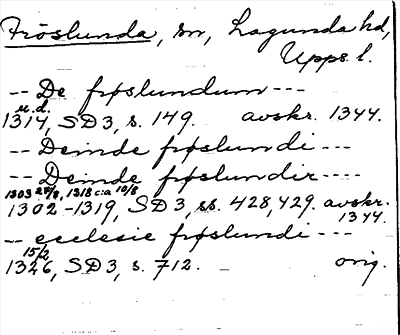 Fröslunda, sn, Lagunda hd,
Upps. l.
-- De frøslundum ---
u.d.
1314, SD3, s. 149. avskr. 1344.
-- Deinde frøslundi ---
-- Deinde frøslundir ----
1303 27/8, 1318 c:a 10/8
1302-1319, SD3, ss. 428,429. avskr.
1344.
-- ecclesie frøslundi ---
15/2
1326, SD3, s. 712. orig.